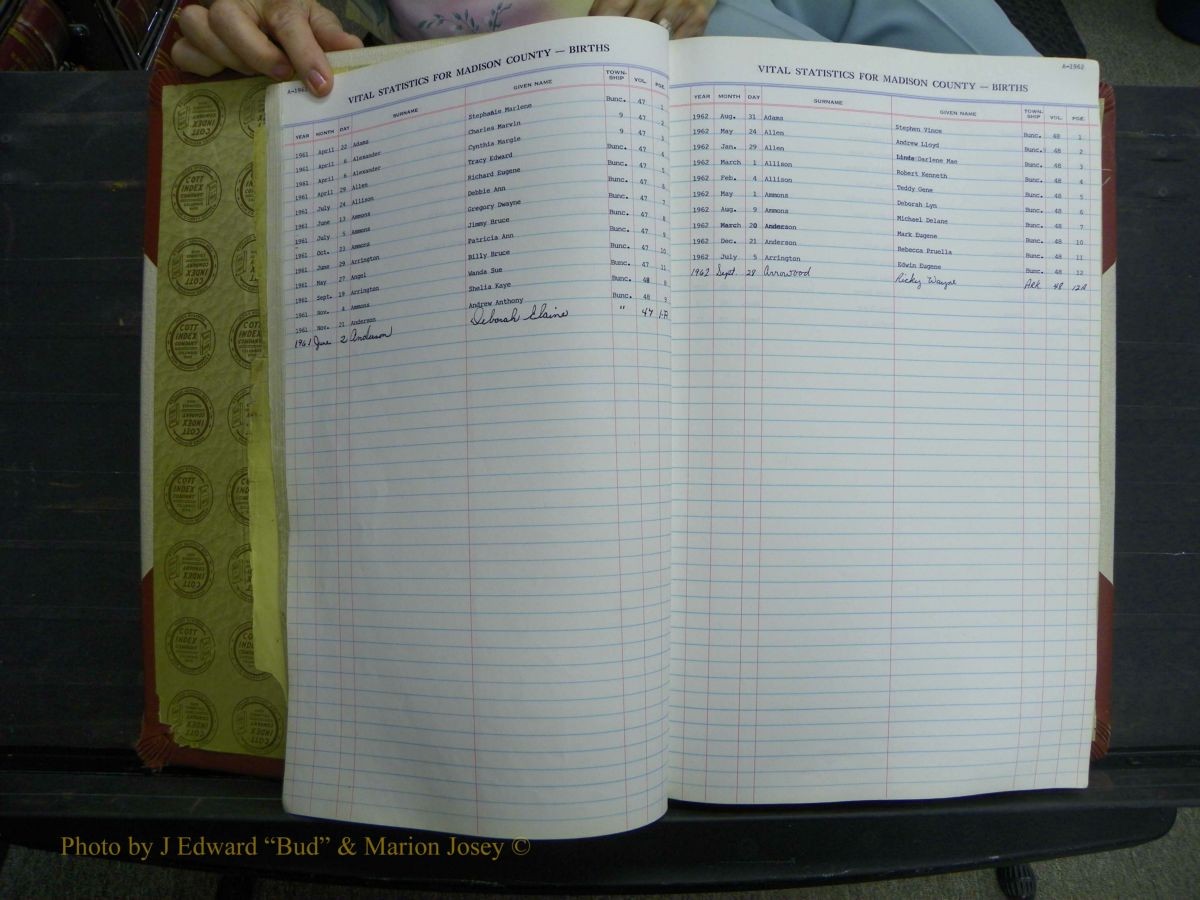 A-1961
VITAL STATISTICS FOR MADISON COUNTY — BIRTHS
YEAR MONTH DAY SURNAME GIVEN NAME TOWN-SHIP VOL. PGE.
1961 April 22 Adams Stephanie Marlene Bunc. 47 1
1961 April 6 Alexander Charles Marvin 9 47 2
1961 April 6 Alexander Cynthia Margie 9 47 3
1961 April 29 Allen Tracy Edward Bunc. 47 4
1961 July 24 Allison Richard Eugene Bunc. 47 5
1961 June 13 Ammons Debbie Ann Bunc. 47 6
1961 July 5 Ammons Gregory Dwayne Bunc. 47 7
1961 Oct. Ammons Jimmy Bruce Bunc. 47 8
1961 June 29 Arrington Patricia Ann Bunc. 47 9
1961 May 27 Angel Billy Bruce Bunc. 47 10
1961 Sept. 19 Arrington Wanda Sue Bunc. 47 11
1961 Nov. 4 Ammons Shelia Kaye Bunc. 48 8
1961 Nov. 21 Anderson Andrew Anthony Bunc. 48 9
1961 June 2 Anderson Deborah Elaine " 47 1-A
A-1962
VITAL STATISTICS FOR MADISON COUNTY — BIRTHS
YEAR MONTH DAY SURNAME GIVEN NAME TOWN-SHIP VOL. PGE.
1962 Aug. 31 Adams Stephen Vince Bunc. 48 1
1962 May 24 Allen Andrew Lloyd Bunc. 48 2
1962 Jan. 29 Allen Linda Darlene Mae Bunc. 48 3
1962 March 1 Allison Robert Kenneth Bunc. 48 4
1962 Feb. 4 Allison Teddy Gene Bunc. 48 5
1962 May 1 Ammons Deborah Lyn Bunc. 48 6
1962 Aug. 9 Ammons Michael Delane Bunc. 48 7
1962 March 20 Anderson Mark Eugene Bunc. 48 10
1962 Dec. 21 Anderson Rebecca Pruella Bunc. 48 11
1962 July 5 Arrington Edwin Eugene Bunc. 48 12
1962 Sept. 28 Arrowood Ricky Wayne 48 12A
COTT INDEX COMPANY
Photo by J Edward “Bud” & Marion Josey ©